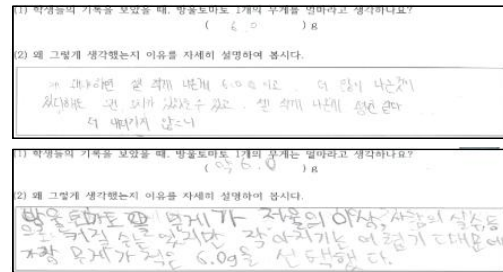 (1) 학생들의 기록을 보았을 때, 방울토마토 1개의 무게를 얼마라고 생각하나요?
( 6.0 ) g
(2) 왜 그렇게 생각했는지 이유를 자세히 설명하여 봅시다.
왜냐하면 젤 작게 나온게 6.0이고, 더 많이 나온것이
있다해도 오차가 있을 수 있고, 젤 작게 나온게
더 내려가지 않으니
(1) 학생들의 기록을 보았을 때, 방울토마토 1개의 무게는 얼마라고 생각하나요?
( 약 6.0 ) g
(2) 왜 그렇게 생각했는지 이유를 자세히 설명하여 봅시다.
방울토마토 무게가 저울의 이상, 사람의 실수등
으로 커질 수는 있지만 작아지기는 어렵기 때문에
가장 무게가 적은 6.0g을 선택했다.